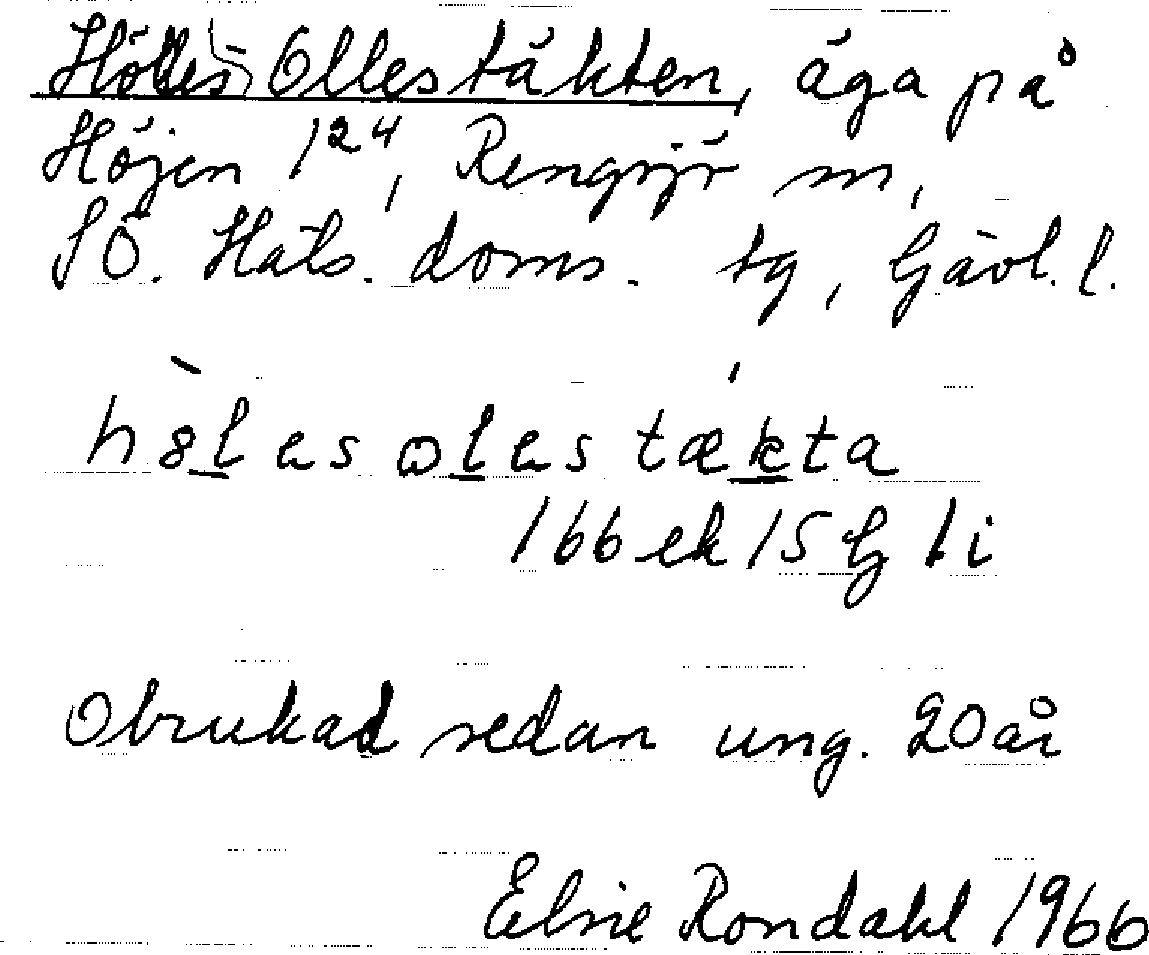 Hölles Ollestäkten, äga på
Höjen 1²⁴, Rengsjö m,
SÖ. Häls. doms. tg, Gävl. l.
hølesωlestækta
166 ek 15 G
Obrukad sedan ung. 20 år
Elsie Rondahl 1966